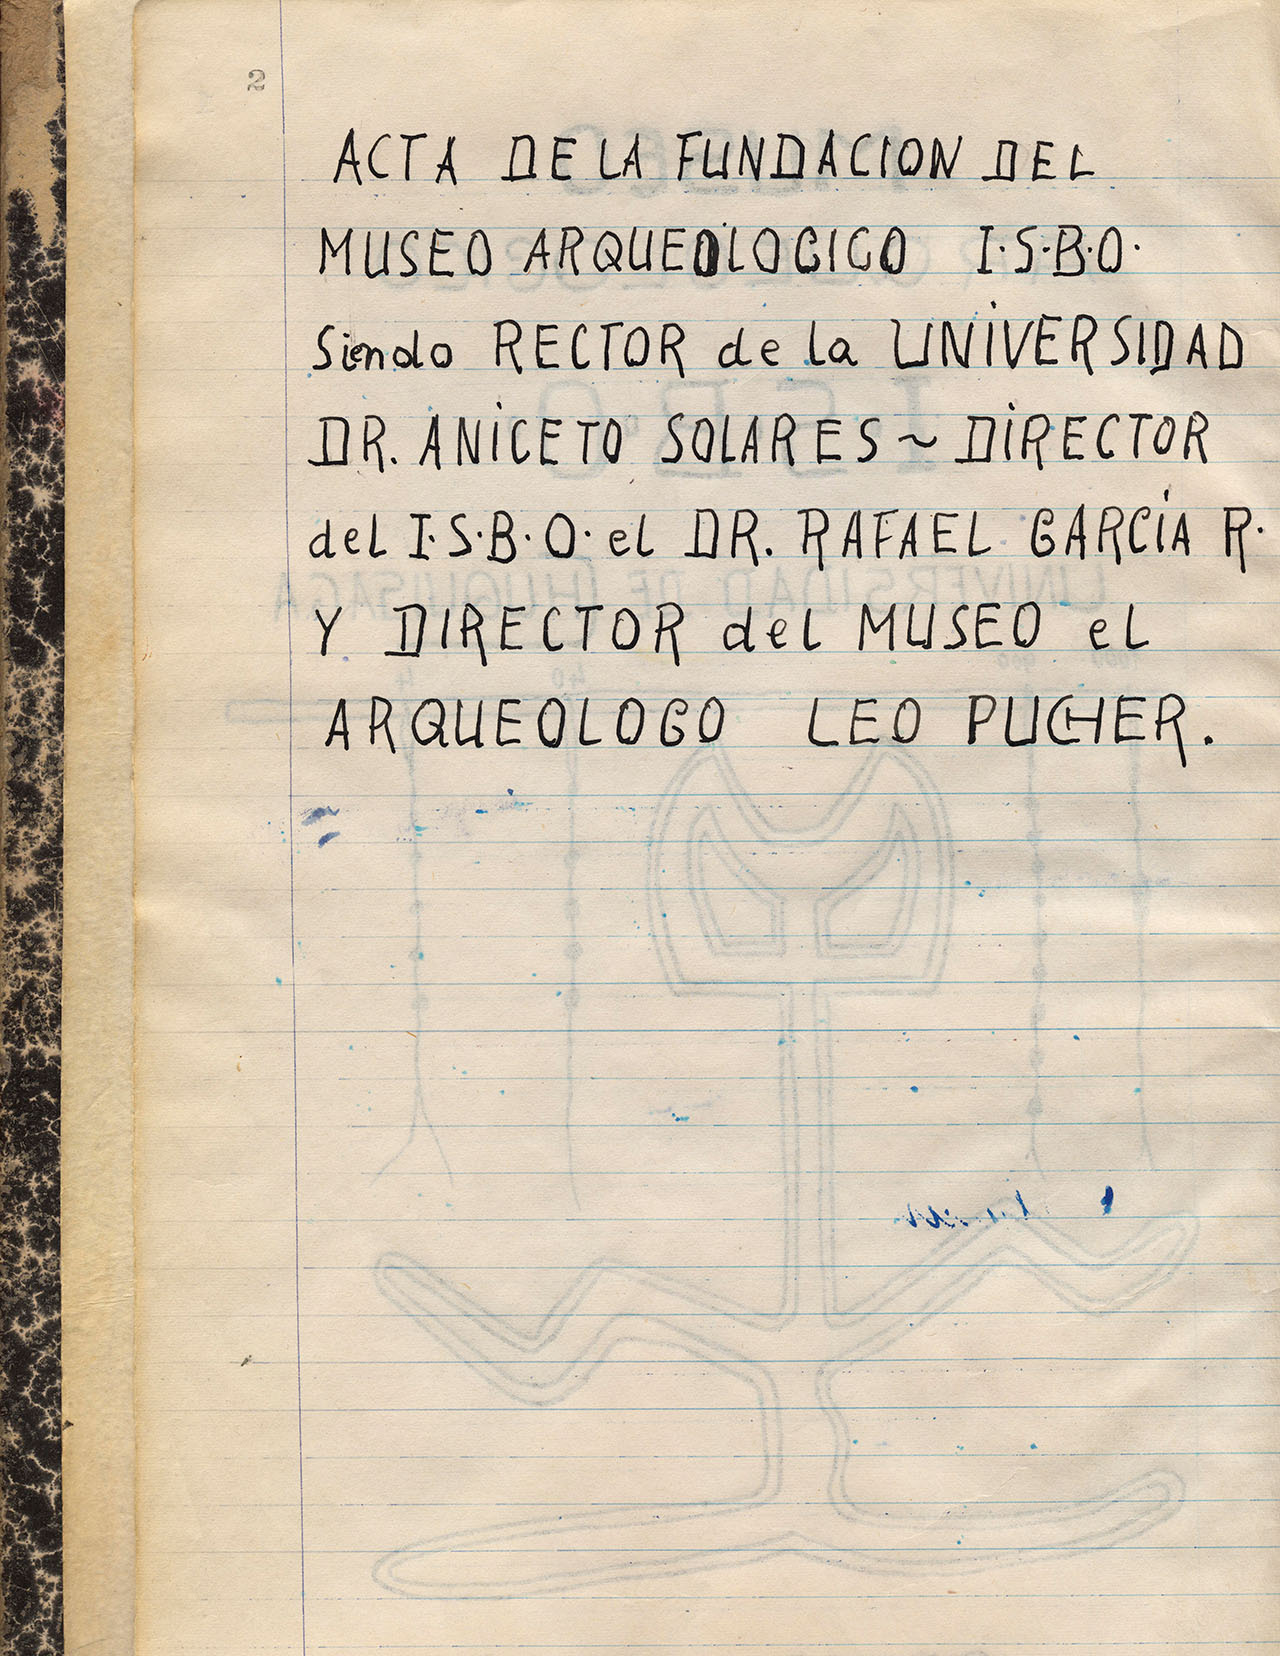 2
ACTA DE LA FUNDACION DEL
MUSEO ARQUEOLOGICO I·S·B·O·
Siendo RECTOR de la UNIVERSIDAD
DR. ANICETO SOLARES ~ DIRECTOR
del I·S·B·O· el DR. RAFAEL GARCÍA R.
Y DIRECTOR del MUSEO el
ARQUEOLOGO LEO PUCHER.